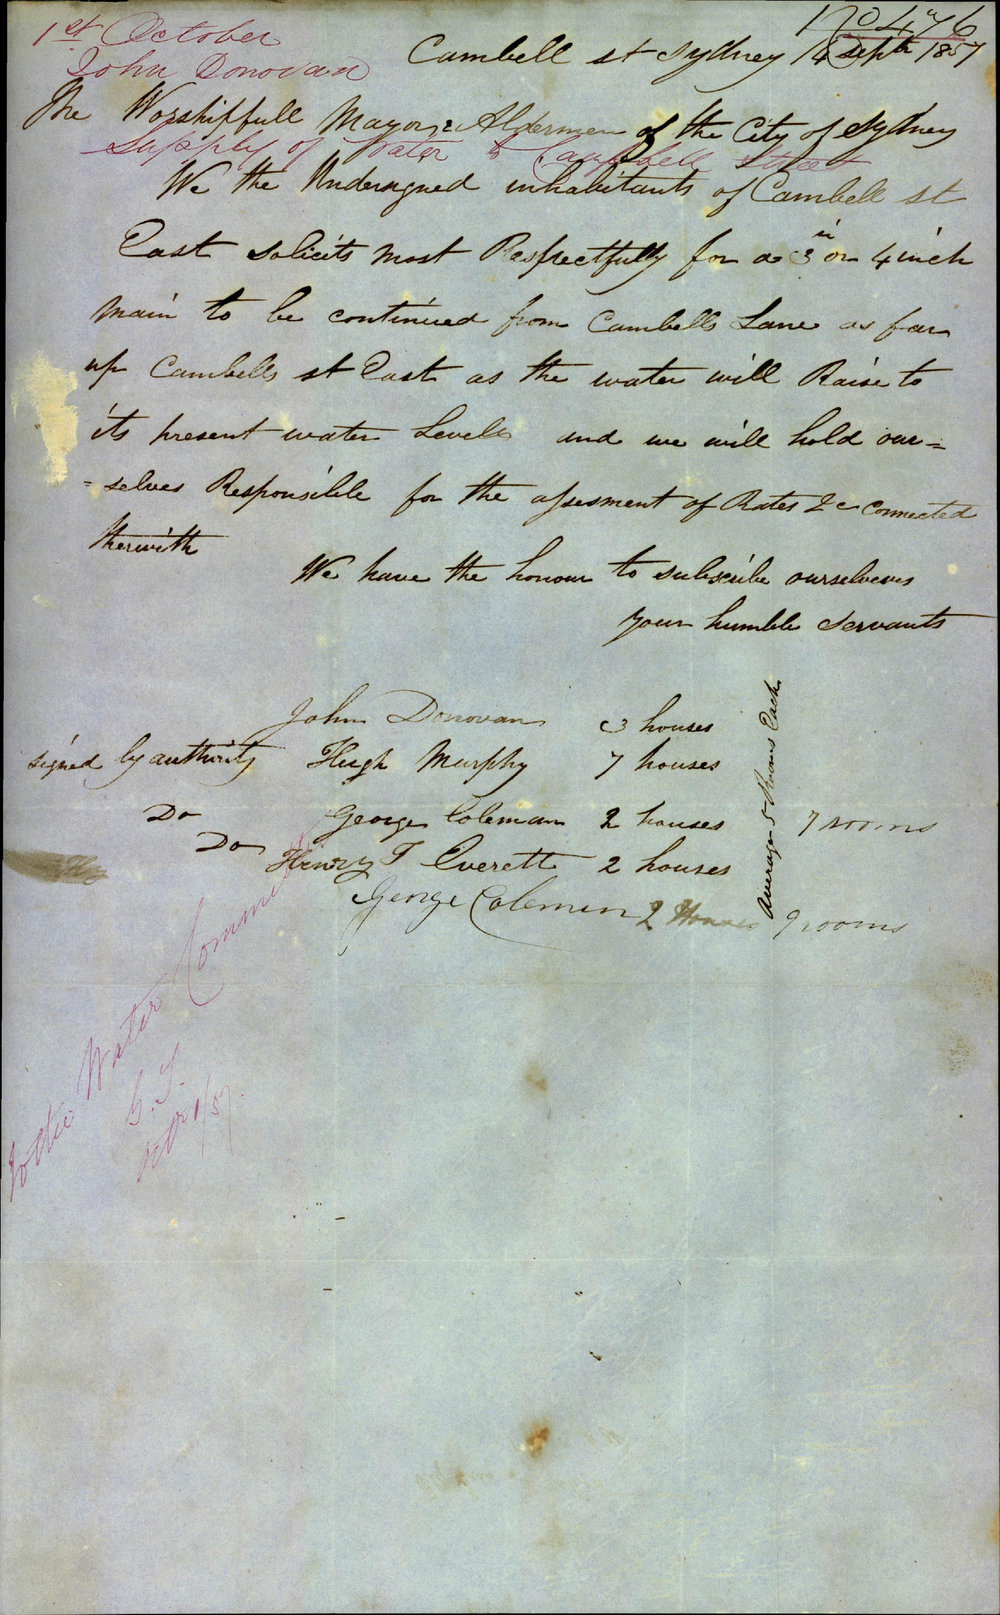 1st October
John Donovan
No 476
Cambell st Sydney 14 Septr 1857
The Worshipfull Mayor & Aldermen of the City of Sydney
Supply of Water to Campbell Street
We the Undersigned inhabitants of Cambell st
East Solicits most Respectfully for a 3 in or 4 inch
main to be continued from Cambells Lane as far
up Cambells st East as the water will Raise to
its present water Levels and we will hold our=
=selves Responsible for the assesment of Rates &c connected
therwith
We have the honour to subscribe ourselveves
your humble Servants
John Donovan 3 houses
signed by authority Hugh Murphy 7 houses
Do George Coleman 2 houses 7 rooms
Do Henry T Everett 2 houses
George Colemin 2 Houses 9 rooms
Average 5 Rooms Each
Water Committee
G. Y.
Octr 1/57.